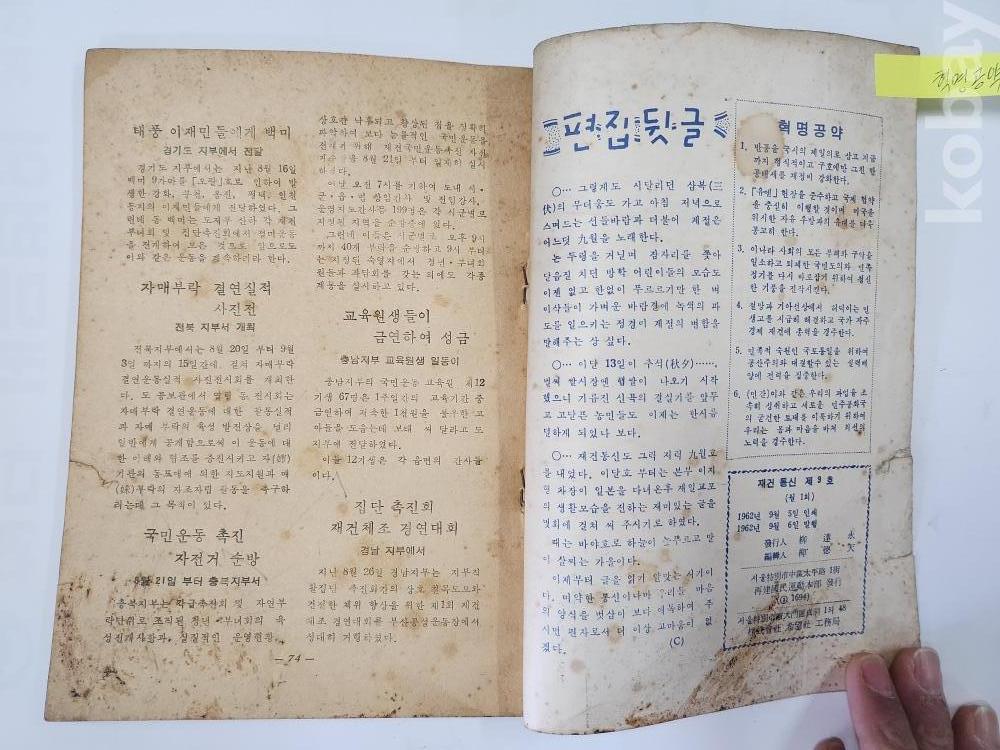 태풍 이재민들에게 백미
경기도 지부에서 전달
경기도 지부에서는 지난 8월 16일
백미 9가마를
생한 강화, 부천, 옹진, 평택, 인천
등지의 이재민들에게 전달하였다. 그
런데 동 백미는 도지부 산하 각 재건
부녀회 및 집단촉진회에서 절미운동
을 전개하여 모은 것으로 앞으로도
이와 같은 운동을 계속하리라 한다.
자매부락 결연실적
사진전
전북 지부서 개최
전북지부에서는 8월 20일 부터 9월
3일 까지의 15일간에 걸쳐 자매부락
결연운동실적 사진전시회를 개최한
다. 도 공보관에서 열릴 동 전시회는
자매부락 결연운동에 대한 활동실적
과 자매 부락의 육성 발전상을 널리
일반에게 공개함으로써 이 운동에 대
한 이해와 협조를 증진시키고 자(姉)
기관의 동료애에 의한 지도지원과 매
(妹)부락의 자조자립 활동을 촉구하
려는데 그 목적이 있다.
국민운동 촉진
자전거 순방
8월 21일 부터 충북지부서
충북지부는 각급촉진회 및 자연부
락단위로 조직된 청년 부녀회의 육
성진개사항과, 실질적인 운영현황,
상호간
파악하여 보다 능률적인 국민운동을
전개키 위해 재건국민운동촉진
8월 21일 부터 일제히 실시
하였다.
이날 오전 7시를 기하여 도내 시·
군·읍·면 상임간사 및 전임강사,
운영지도간사등 199명은 각 시군별로
지정된 지역을 순방중에 있다.
그런데 이들은 1시군별로 오후 9시
까지 40개 부락을 순방하고 9시 부터
는 지정된 숙영지에서 청년·부녀회
원들과 좌담회를 갖는 외에도 각종
계몽을 실시하고 있다.
교육원생들이
금연하여 성금
충남지부 교육원생 일동이
충남지부의 국민운동 교육원 제12
기생 67명은 1주일간의 교육기간 중
금연하여 저축한 1천원을 불우한 고
아들을 도웁는데 보태 써 달라고 도
지부에 전달하였다.
이들 12기생은 각 읍면의 간사들
이다.
집단 촉진회
재건체조 경연대회
경남 지부에서
지난 8월 26일 경남지부는 지부직
할집단 촉진회간의 상호 친목도모와
건전한 체위 향상을 위한 제1회 재건
체조 경연대회를 부산공설운동장에서
성대히 거행하였다.
— 74 —
편집뒷글
○… 그렇게도 시달리던 삼복(三
伏)의 무더움도 가고 아침 저녁으로
스며드는 신들바람과 더불어 계절은
어느덧 九월을 노래한다.
논 두렁을 거닐며 잠자리를 쫓아
달음질 치던 방학 어린이들의 모습도
이젠 없고 한없이 푸르르기만 한 벼
이삭들이 가벼운 바람결에 녹색의 파
도를 일으키는 정경이 계절의 변함을
말해주는 상 싶다.
○… 이달 13일이 추석(秋夕)……,
벌써 쌀시장엔 햅쌀이 나오기 시작
했으니 기름진 신곡의 결실기를 앞두
고 고달픈 농민들도 이제는 한시름
덜하게 되었나 보다.
○… 재건통신도 그럭 저럭 九월호
를 내었다. 이달호 부터는 본부 이지
영 차장이 일본을 다녀온후 재일교포
의 생활모습을 전하는 재미있는 글을
몇회에 걸쳐 써 주시기로 하였다.
때는 바야흐로 하늘이 높푸르고 말
이 살찌는 가을이다.
이제부터 글을 읽기 알맞는 시기이
다. 미약한 통신이나마 우리들 마음
의 양식을 벗삼아 보다 애독하여 주
시면 편자로서 더 이상 고마움이 없
겠다. (C)
혁명공약
1, 반공을 국시의 제일의로 삼고 지금
까지 형식적이고 구호에만 그친 반
공태세를 재정비 강화한다.
2, 「유엔」 헌장을 준수하고 국제 협약
을 충실히 이행할 것이며 미국을
위시한 자유 우방과의 유대를 더욱
공고히 한다.
3. 이나라 사회의 모든 부패와 구악을
일소하고 퇴폐한 국민도의와 민족
정기를 다시 바로잡기 위하여 청신
한 기풍을 진작시킨다.
4. 절망과 기아선상에서 허덕이는 민
생고를 시급히 해결하고 국가 자주
경제 재건에 총력을 경주한다.
5. 민족적 숙원인 국토통일을 위하여
공산주의와 대결할수 있는 실력배
양에 전력을 집중한다.
6. (민간)이와 같은 우리의 과업을 조
속히 성취하고 새로운 민주공화국
의 굳건한 토대를 이룩하기 위하여
우리는 몸과 마음을 바쳐 최선의
노력을 경주한다.
재건 통신 제 9 호
(월 1회)
1962년 9월 5일 인쇄
1962년 9월 6일 발행
發行人 柳 達 永
編輯人
서울特別市中區太平路 1街
再建國民運動本部 發行
서울特別市西大門區貞洞 1의 48
株式會社 希望社 工務局
혁명공약
kobay